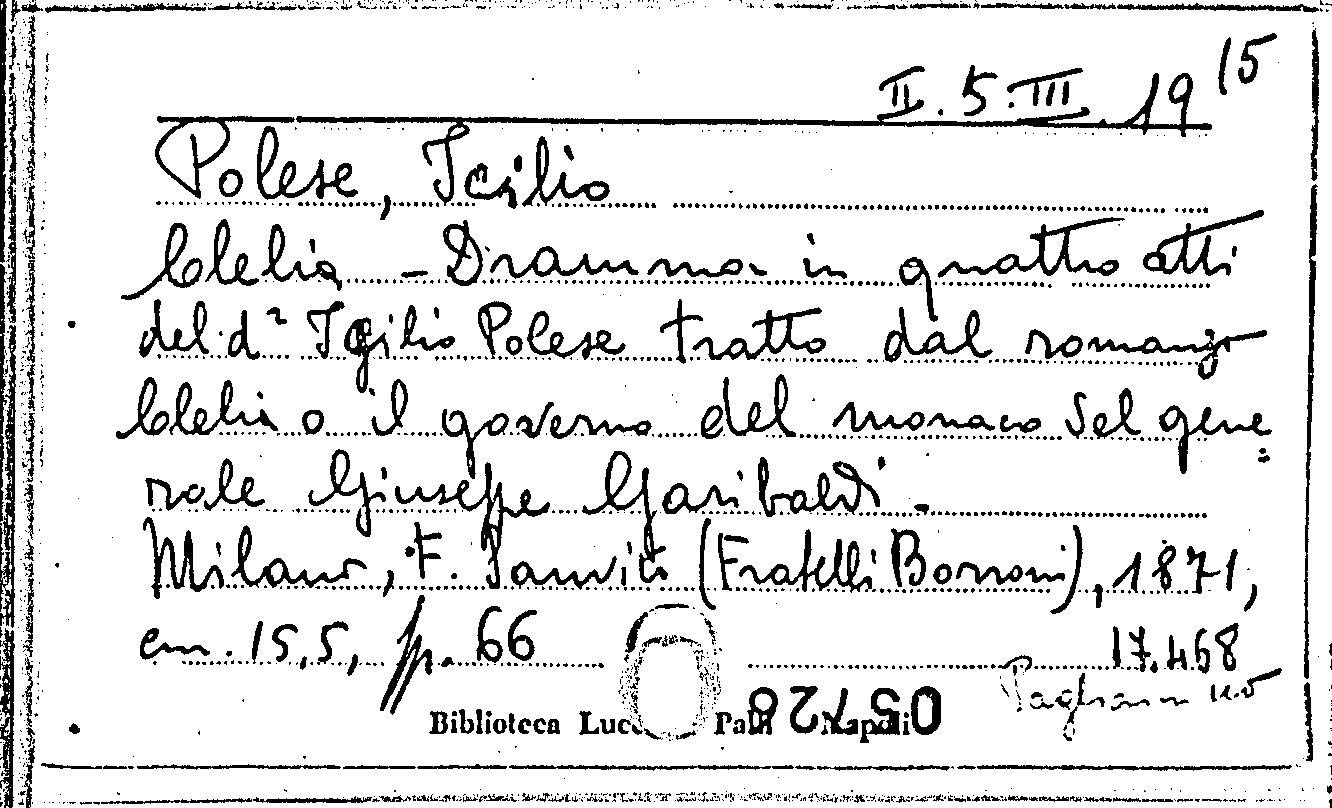 II. 5. III. 19 15
Polese, Icilio
Clelia - Dramma in quattro atti
del d.r Icilio Polese tratto dal romanzo
Clelia o il governo del monaco del gene
rale Giuseppe Garibaldi.
Milano, F. Sanvito (Fratelli Borroni), 1871,
cm. 15,5, pp. 66
17.468
Biblioteca Lucchesi Palli Napoli